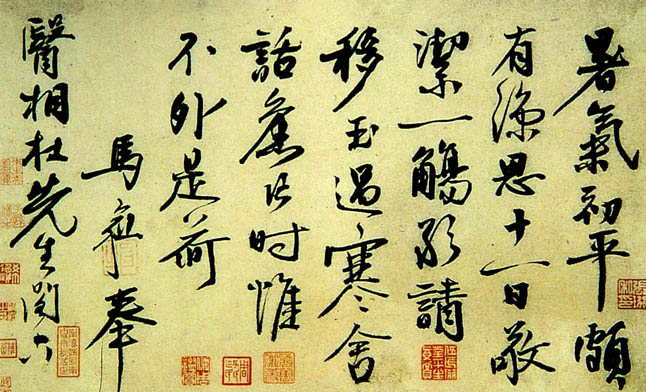 暑氣初平頗
有涼思十一日敬
潔一觴敢請
移玉過寒舍
話舊片時惟
不外是荷
馬愈奉
醫相杜先生閣下